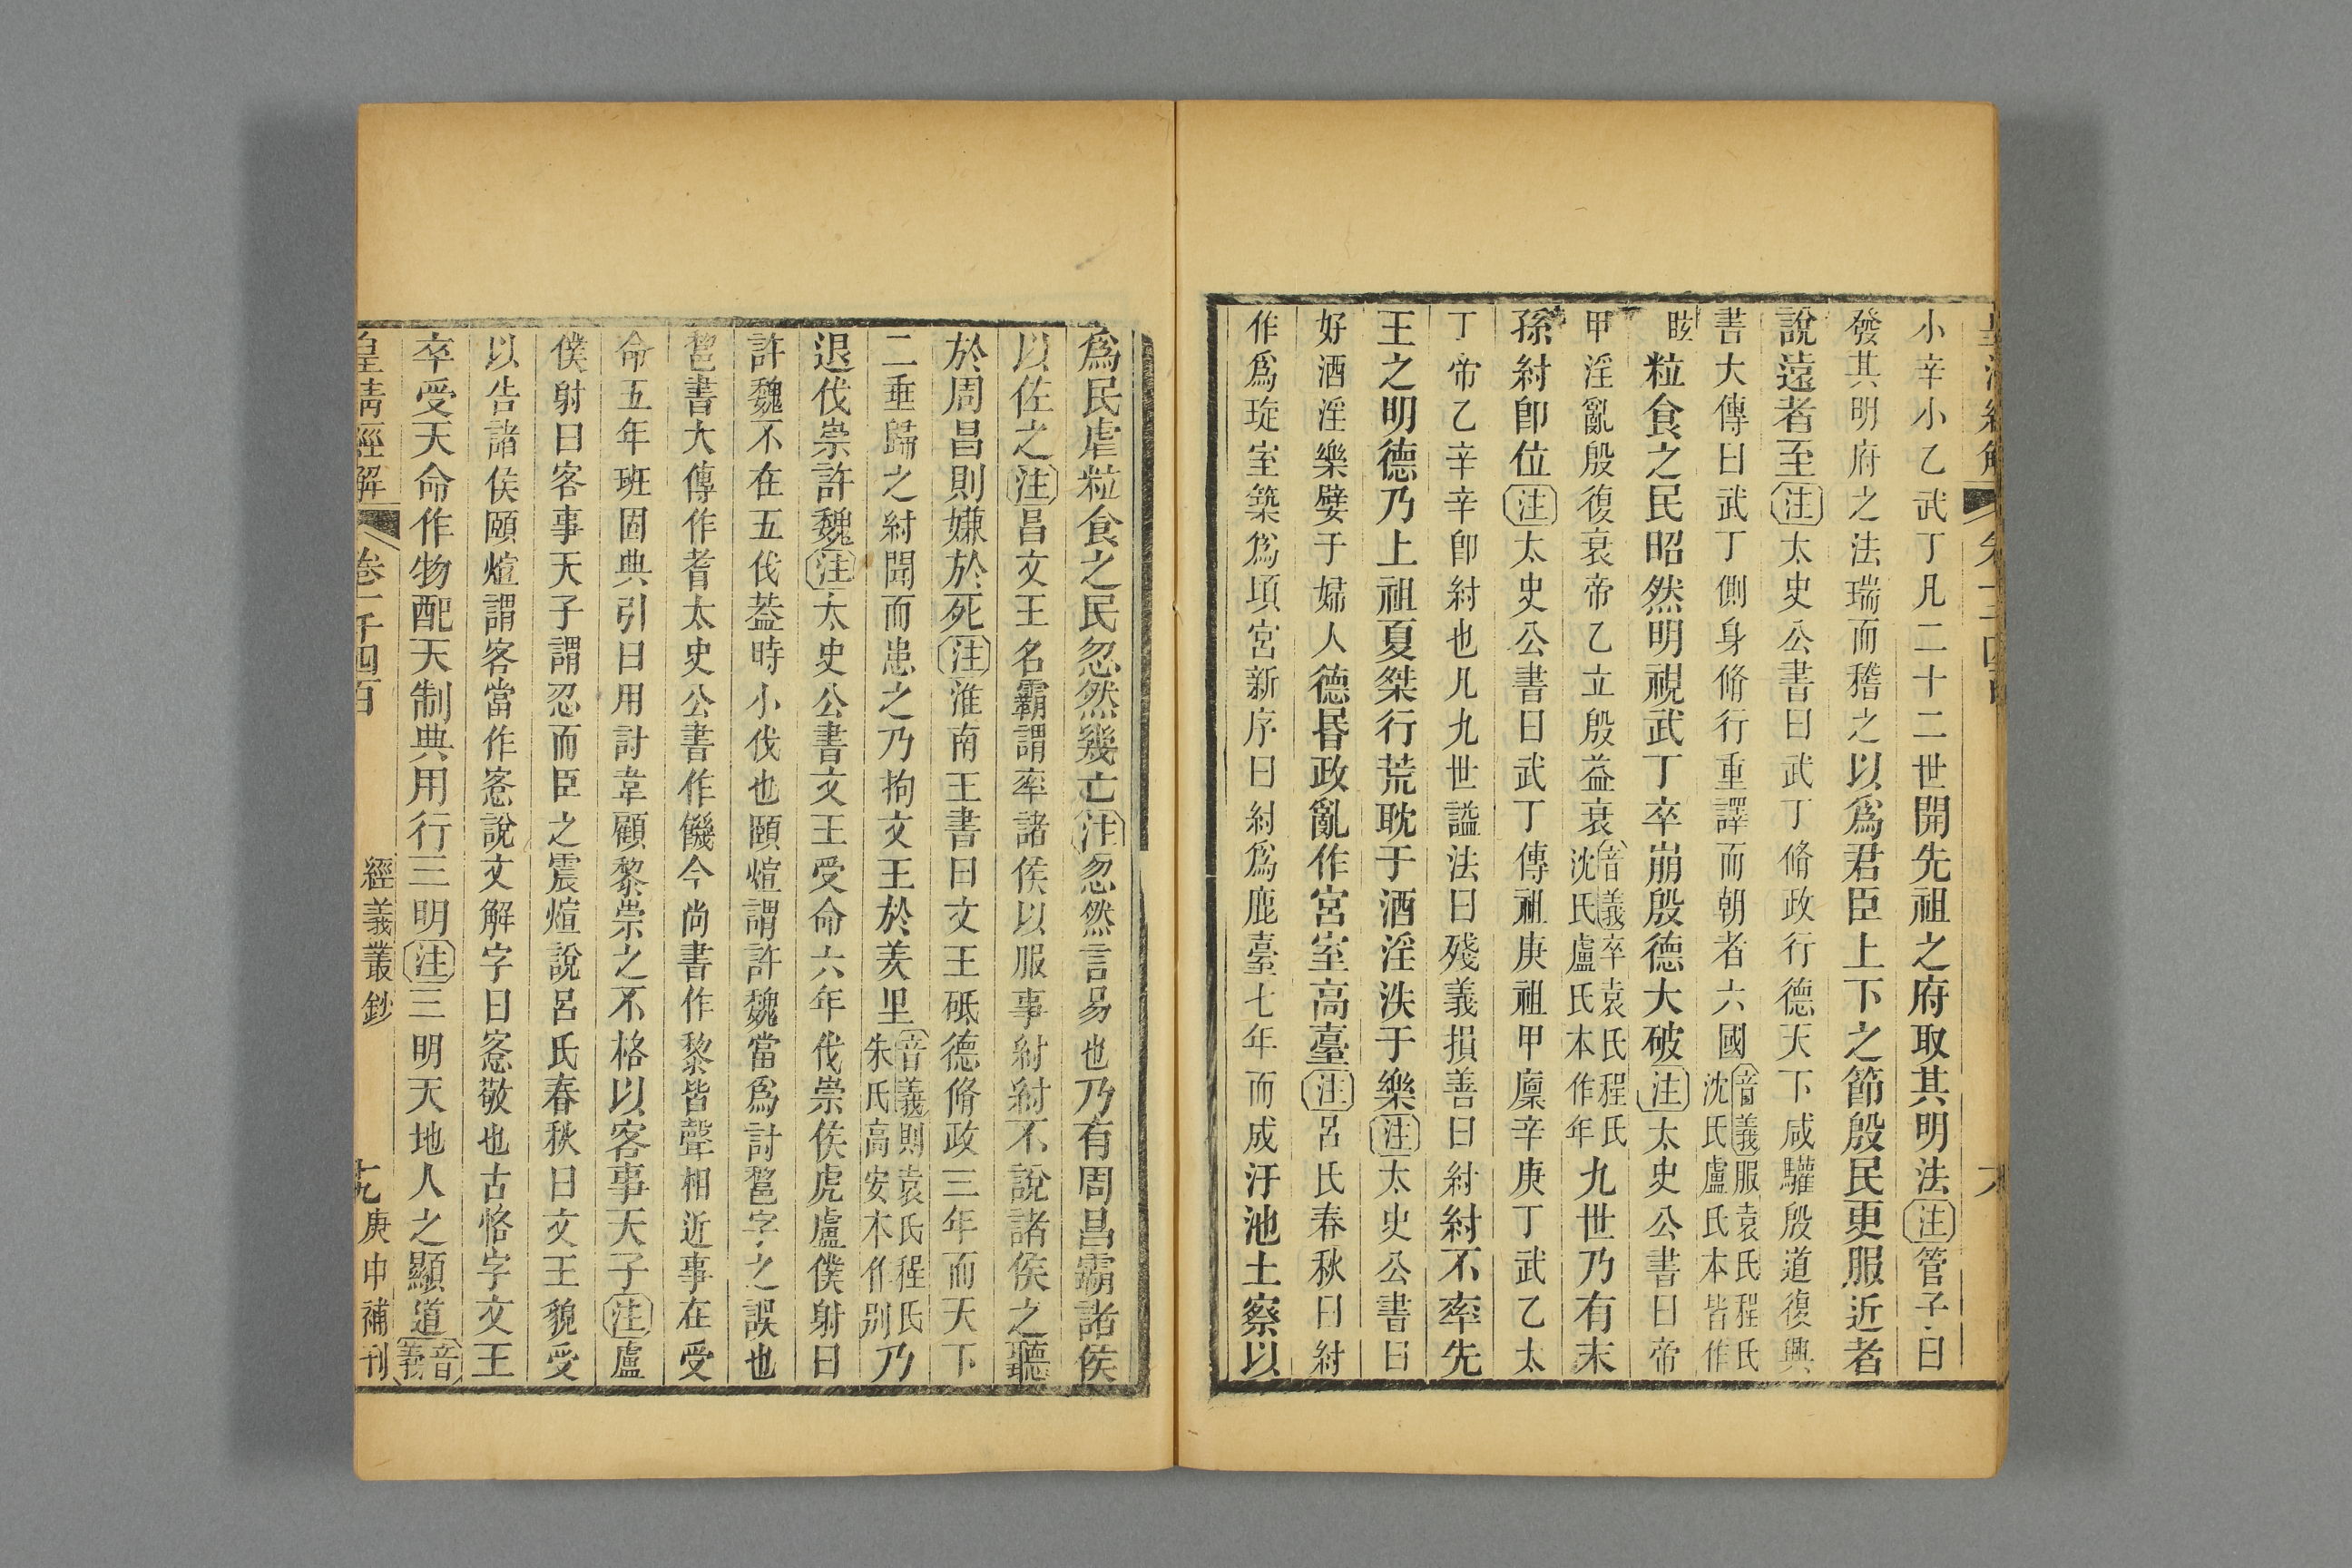 小辛小乙武丁凡二十二世開先祖之府取其明法注管子曰
發其明府之法瑞而稽之以爲君臣上下之節殷民更服近者
說遠者至注太史公書曰武丁脩政行德天下咸驩殷道復興
書大傳曰武丁側身脩行重譯而朝者六國音義服袁氏程氏沈氏盧氏本皆作
䀏粒食之民昭然明視武丁卒崩殷德大破注太史公書曰帝
甲淫亂殷復衰帝乙立殷益衰音義卒袁氏程氏沈氏盧氏本作年九世乃有末
孫紂卽位注太史公書曰武丁傳祖庚祖甲廩辛庚丁武乙太
丁帝乙辛辛卽紂也凡九世謚法曰殘義損善曰紂紂不率先
王之明德乃上祖夏桀行荒耽于酒淫泆于樂注太史公書曰
好酒淫樂嬖于婦人德昬政亂作宮室高臺注呂氏春秋曰紂
作爲琁室築爲頃宮新序曰紂爲鹿臺七年而成汙池土察以
爲民虐粒食之民忽然幾亡注忽然言易也乃有周昌霸諸侯
以佐之注昌文王名霸謂率諸侯以服事紂紂不說諸侯之聽
於周昌則嫌於死注淮南王書曰文王砥德脩政三年而天下
二垂歸之紂聞而患之乃拘文王於羑里音義則袁氏程氏朱氏高安本作别乃
退伐崇許魏注太史公書文王受命六年伐崇侯虎盧僕射曰
許魏不在五伐葢時小伐也頤煊謂許魏當爲討䣓字之誤也
䣓書大傳作耆太史公書作饑今尚書作黎皆聲相近事在受
命五年班固典引曰用討韋顧黎崇之不格以客事天子注盧
僕射曰客事天子謂忍而臣之震煊說呂氏春秋曰文王貌受
以告諸侯頤煊謂客當作愙說文解字曰愙敬也古恪字文王
卒受天命作物配天制典用行三明注三明天地人之顯道音義
皇清經解 卷一千四百 經義叢鈔 十九 庚申補刊